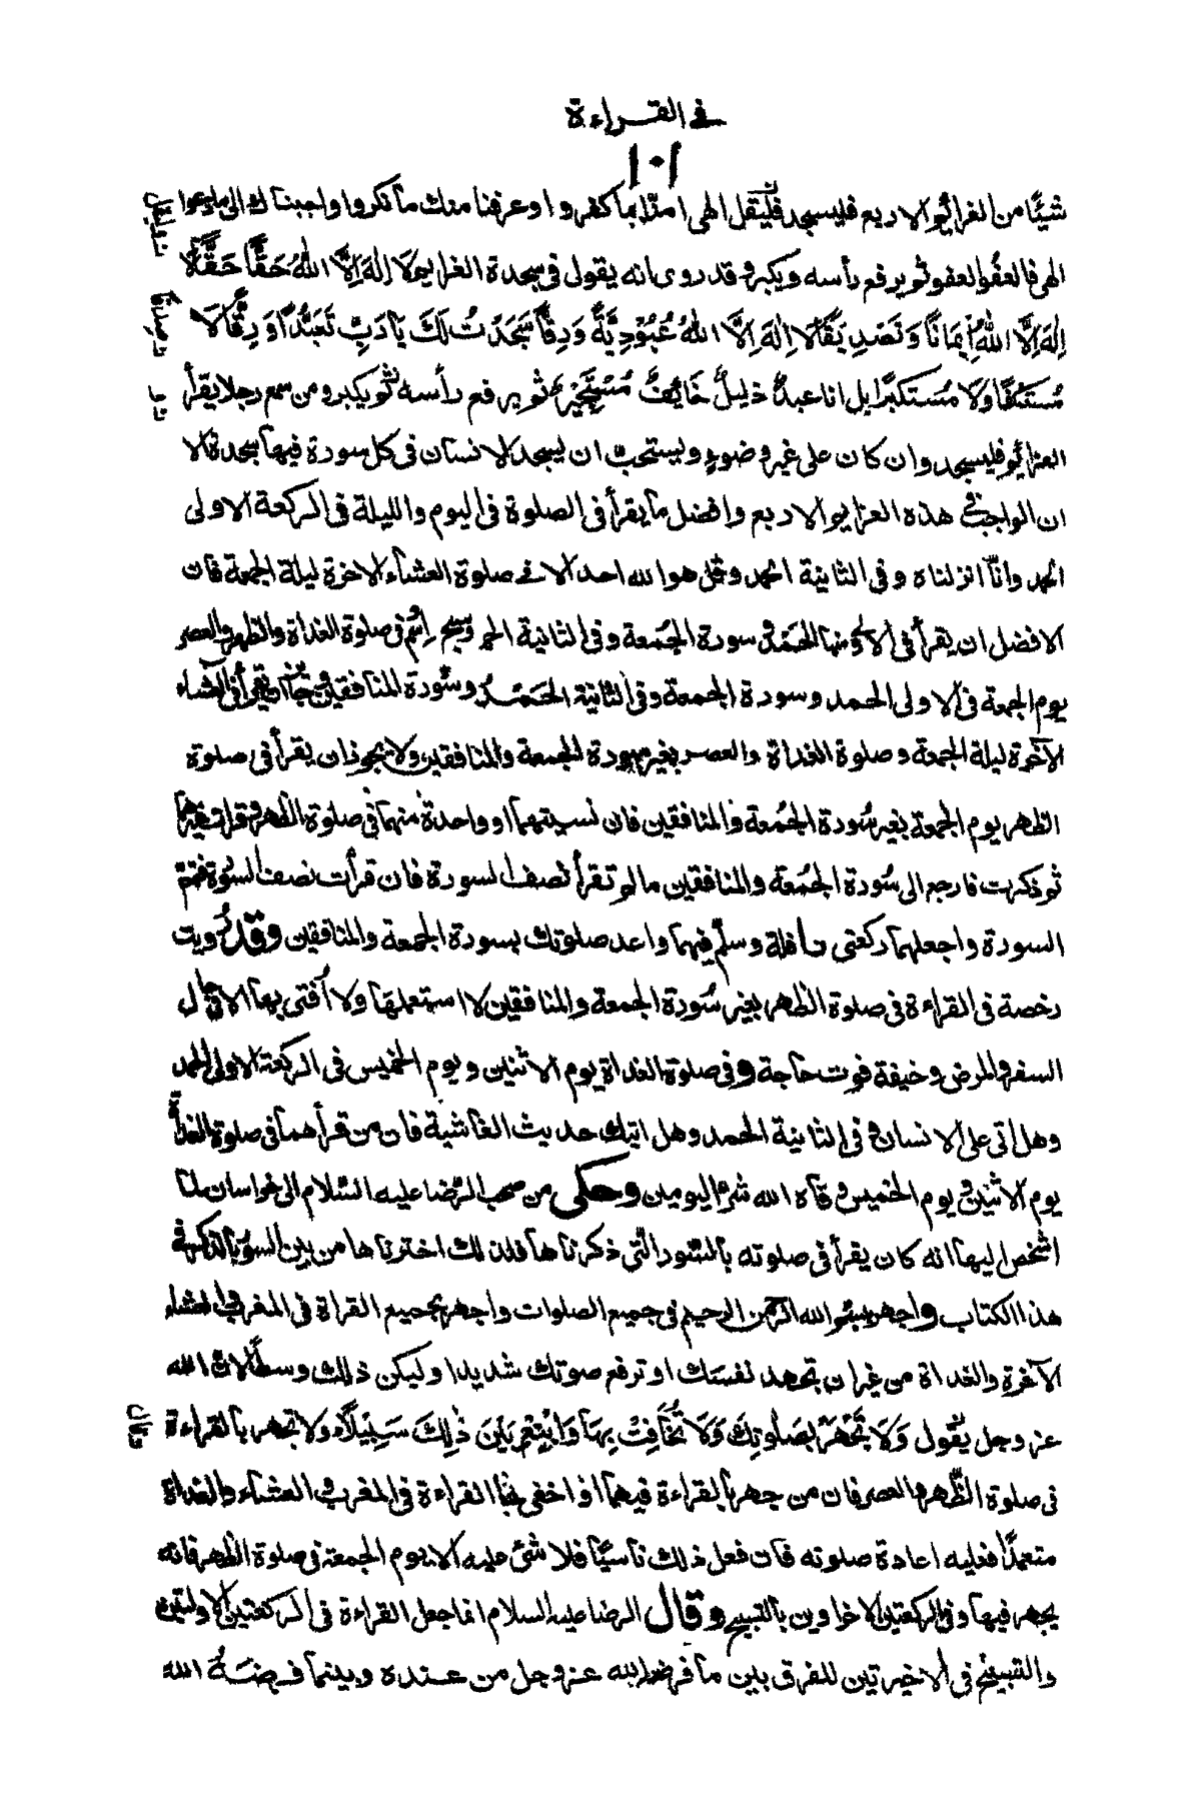 في القراءة
١٠١
شيئا من العزائم الاربع فليسجد فليقل الهى امنا بما كفروا وعرفنا منك ما نكروا واجبناك الى ما دعوا
الهى فالعفو العفو ثم يرفع رأسه ويكبر وقد روى انه يقول فى سجدة العزايم لا اِلهَ اِلَّا اللهُ حَقًّا حَقًّا لَا
اِلٰهَ اِلَّا اللهُ اِيمَانًا وَتَصْدِيقًا لَا اِلٰهَ اِلَّا اللهُ عُبُوْدِيَّةً وَرِقًّا سَجَدْتُ لَكَ يَا رَبِّ تَعَبُّدًا وَرِقًّا لَا
مُسْتَنْكِفًا وَلَا مُسْتَكْبِرًا بل انا عبدٌ ذليلٌ خَائِفٌ مُسْتَجِيْرٌ ثم يرفع رأسه ثم يكبر ومن سمع رجلا يقرأ
العزايم فليسجد وان كان على غير وضوء ويستحبّ ان يسجد الانسان فى كل سورة فيها سجدة الا
ان الواجب فى هذه العزايم الاربع وافضل ما يقرأ فى الصلوة فى اليوم والليلة فى الركعة الاولى
الحمد وانّا انزلناه وفى الثانية الحمد وقل هو الله احد الا فى صلوة العشاء الاخرة ليلة الجمعة فان
الافضل ان يقرأ فى الاولى منها الحَمْدُ وسورة الجُمعة وفى الثانية الحمد وسبح اسم وفى صلوة الغداة والظهر والعصر
يوم الجمعة فى الاولى الحمد وسورة الجمعة وفى الثانية الحَمْدُ وسُورة المنافقين وجائز ان يقرأ فى العشاء
الآخرة ليلة الجمعة وصلوة الغداة والعصر بغير سورة الجمعة والمنافقين ولا يجوز ان يقرأ فى صلوة
الظهر يوم الجمعة بغير سُورة الجُمُعة والمنافقين فان نسيتهما او واحدة منهما فى صلوة الظهر وقرات غيرهما
ثم ذكرت فارجع الى سُورة الجُمُعة والمنافقين ما لم تقرأ نصف السورة فان قرأت نصف السورة فتمم
السورة واجعلهما ركعتى نافلة وسلّم فيهما واعد صلوتك بسورة الجمعة والمنافقين وقد رُويت
رخصة فى القراءة فى صلوة الظهر بغير سُورة الجمعة والمنافقين لا استعملها ولا اُفتى بها الا فى حال
السفر والمرض وخيفة فوت حاجة وفى صلوة الغداة يوم الاثنين ويوم الخميس فى الركعة الاولى الحمد
وهل اتى على الانسان وفى الثانية الحمد وهل اتيك حديث الغاشية فان من قرأهما فى صلوة الغداة
يوم الاثنين ويوم الخميس وقاه الله شر اليومين وحكى من صحب الرضا عليه السلام الى خراسان لما
اشخص اليها انه كان يقرأ فى صلوته بالسُّور الّتى ذكرناها فلذلك اخترناها من بين السور بالذكر فى
هذا الكتاب واجهر ببسم الله الرحمن الرحيم فى جميع الصلوات واجهر بجميع القراة فى المغرب والعشاء
الآخرة والغداة من غير ان تجهد نفسك او ترفع صوتك شديدا وليكن ذلك وسطًا لان الله
عز وجل يقول وَلَا تَجْهَرْ بِصَلٰوتِكَ وَلَا تُخَافِتْ بِهَا وَابْتَغِ بَيْنَ ذٰلِكَ سَبِيْلًا ولا تجهر بالقراءة
فى صلوة الظّهر والعصر فان من جهر بالقراءة فيهما او اخفى بالقراءة فى المغرب والعشاء والغداة
متعمدًا فعليه اعادة صلوته فان فعل ذلك ناسيًا فلا شئ عليه الا يوم الجمعة فى صلوة الظهر فانه
يجهر فيها وفى الركعتين الاخراوين بالتسبيح وقال الرضا عليه السلام انما جعل القراءة فى الركعتين الاولتين
والتسبيح فى الاخيرتين للفرق بين ما فرضه الله عز وجل من عنده وبينما فرضَهُ الله